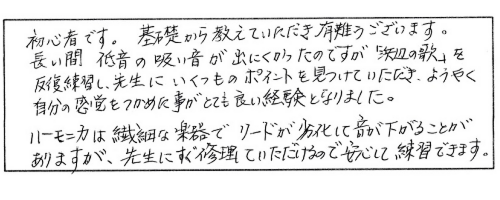 初心者です。 基礎から教えていただき有難うございます。
長い間 低音の吸い音が出にくかったのですが「浜辺の歌」を
反復練習し、先生にいくつものポイントを見つけていただき、ようやく
自分の感覚をつかめた事がとても良い経験となりました。
ハーモニカは繊細な楽器でリードが劣化して音が下がることが
ありますが、先生にすぐ修理していただけるので安心して練習できます。